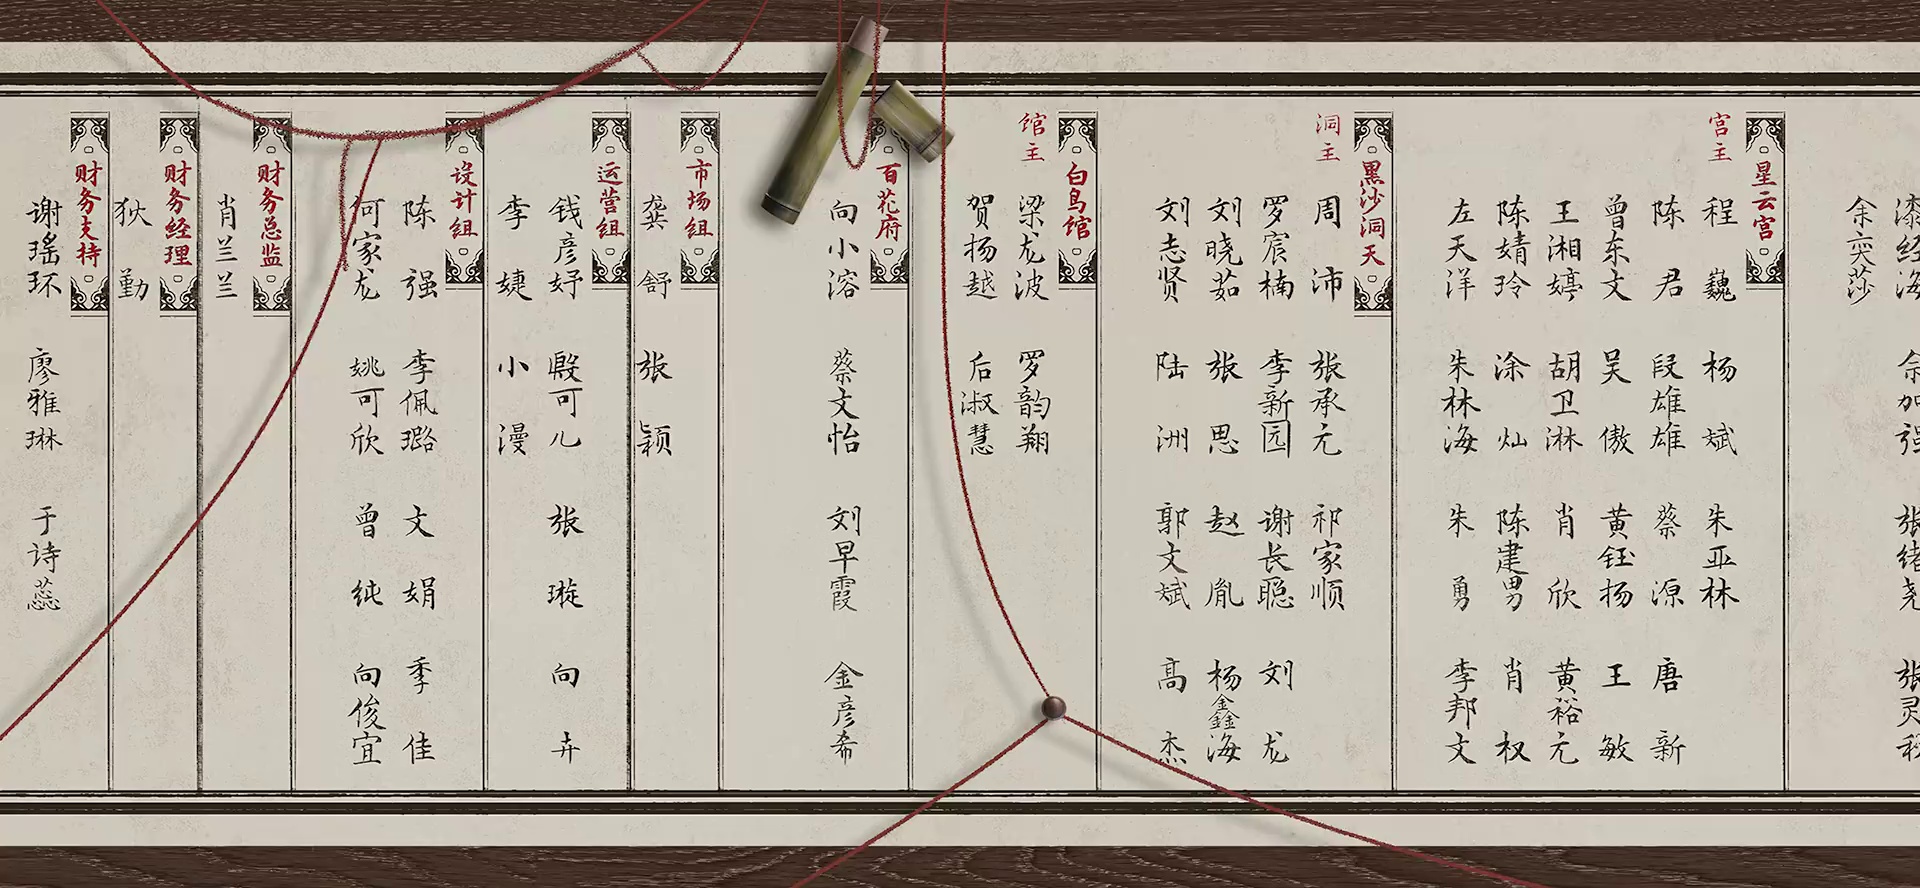 余奕莎
星云宫
宫主
程巍 杨斌 朱亚林
陈君 段雄雄 蔡源 唐新
曾东文 吴傲 黄钰扬 王敏
王湘婷 胡卫淋 肖欣 黄裕元
陈婧玲 涂灿 陈建男 肖权
左天洋 朱林海 朱勇 李邦文
黑沙洞天
洞主
周沛 张承元 祁家顺
罗宸楠 李新园 谢长聪 刘龙
刘晓茹 张思 赵胤 杨鑫海
刘志贤 陆洲 郭文斌 高杰
白鸟馆
馆主
梁龙波 罗韵翔
贺扬越 后淑慧
百花府
向小溶 蔡文怡 刘早霞 金彦希
市场组
龚舒 张颖
运营组
钱彦妤 殿可儿 张璇 向卉
李婕 小漫
设计组
陈强 李佩璐 文娟 季佳
何家龙 姚可欣 曾纯 向俊宜
财务总监
肖兰兰
财务经理
狄勤
财务支持
谢瑶环 廖雅琳 于诗蕊